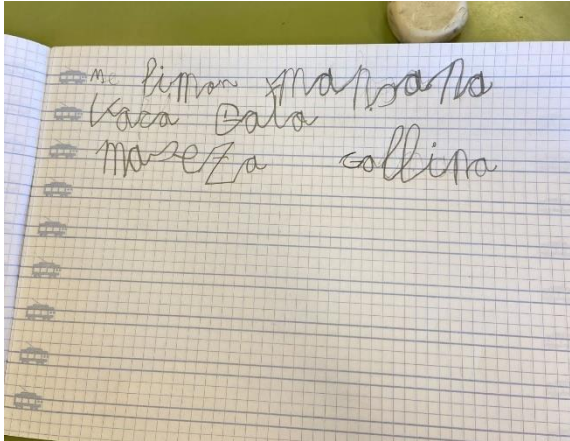 Me limon mansana
Vaca Gata
maseza Gallina